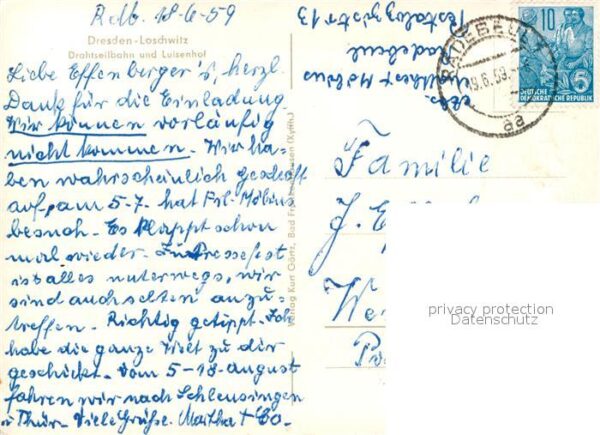 Rdb. 18-6-59
Dresden-Loschwitz
Drahtseilbahn und Luisenhof
Liebe Effenberger's, herzl.
Dank für die Einladung
Wir können vorläufig
nicht kommen. Wir ha-
ben wahrscheinlich geschäft
auf, am 5-7. hat Frl. Möbius
besuch. Es klappt schon
mal wieder. Zum Pressefest
ist alles unterwegs, wir
sind auch selten anzu-
treffen. Richtig getippt. Ich
habe die ganze Welt zu dir
geschickt. Vom 5-18. august
fahren wir nach Schleusingen
i Thür. Viele Grüße. Martha + Co.
Verlag Kurt Görtz, Bad (Kyffh.)
Möbius
Radebeul
Pestalozzistr 13
RADEBEUL 1
18.6.59
aa
10
5
DEUTSCHE
DEMOKRATISCHE REPUBLIK
Familie
J.
We
privacy protection
Datenschutz